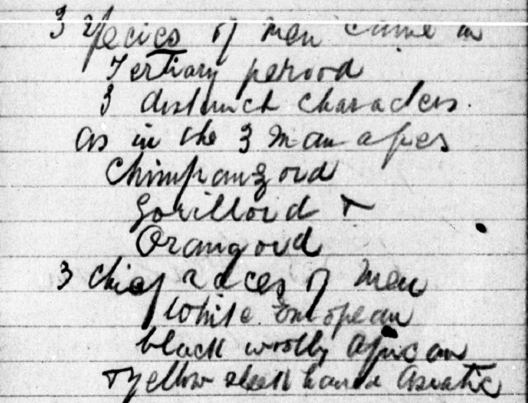 3 species of men came in
Tertiary period
3 distinct characters.
as in the 3 man apes
Chimpanzoid
Gorilloid +
Orangoid
3 chief races of men
White European
black woolly African
+ yellow sleek haired Asiatic